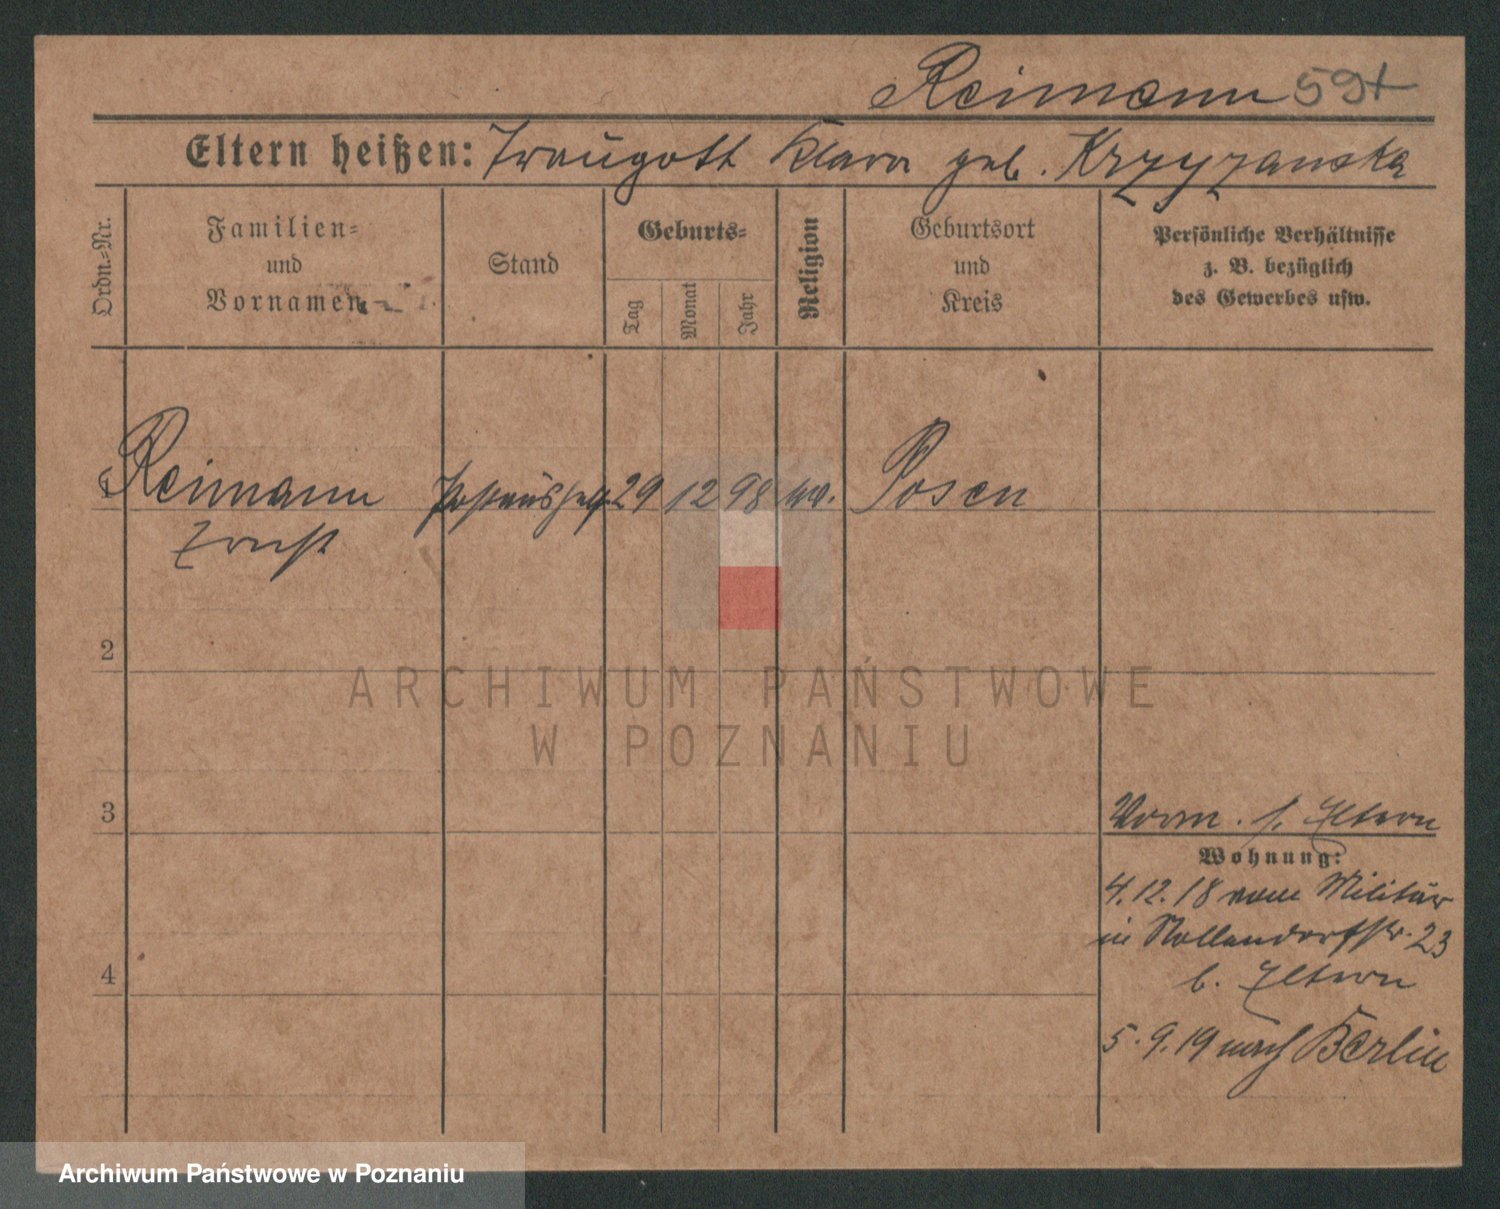 Reimann 59+
Eltern heißen: Traugott Klara geb. Krzyzanska
Ordn.-Nr.
Familien-
und
Vornamen
Stand
Geburts-
Tag
Monat
Jahr
Religion
Geburtsort
und
Kreis
Persönliche Verhältnisse
z. B. bezüglich
des Gewerbes usw.
1 Reimann Postaushelf. 29 12 98 ev. Posen
Ernst
2
3
4
Vorm. s. Eltern
Wohnung:
4.12.18 vom Militär
in Nollendorfstr. 23
b. Eltern
5.9.19 nach Berlin
ARCHIWUM PAŃSTWOWE
W POZNANIU
Archiwum Państwowe w Poznaniu